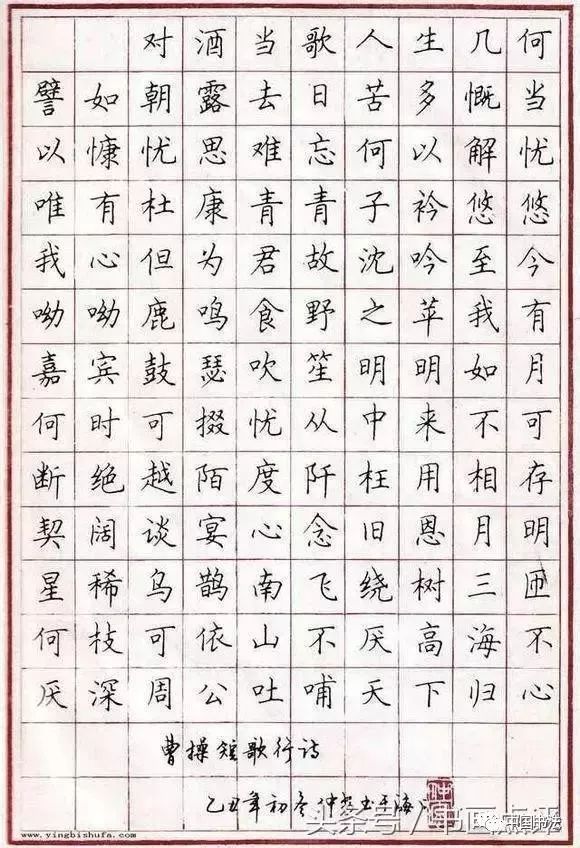 对酒当歌人生几何
譬如朝露去日苦多慨当
以慷忧思难忘何以解忧
唯有杜康青青子衿悠悠
我心但为君故沈吟至今
呦呦鹿鸣食野之苹我有
嘉宾鼓瑟吹笙明明如月
何时可掇忧从中来不可
断绝越陌度阡枉用相存
契阔谈宴心念旧恩月明
星稀鸟鹊南飞绕树三匝
何枝可依山不厌高海不
厌深周公吐哺天下归心
曹操短歌行诗
乙丑年初冬仲书于海
头条号/书画点评
www.yingbishufa.com